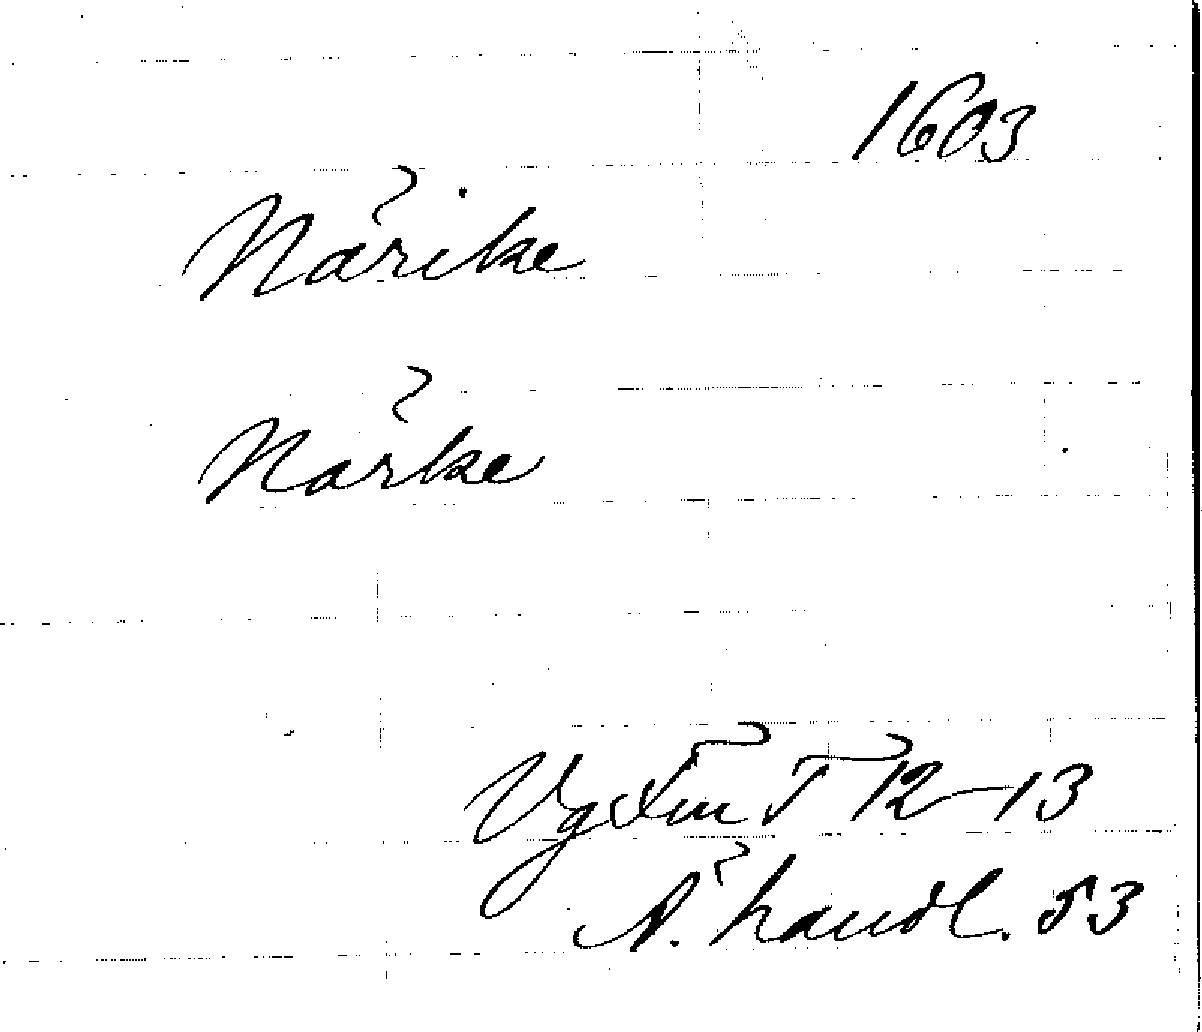 1603
Närike
Närke
Vg Fm T 12-13
Ä. handl. 53